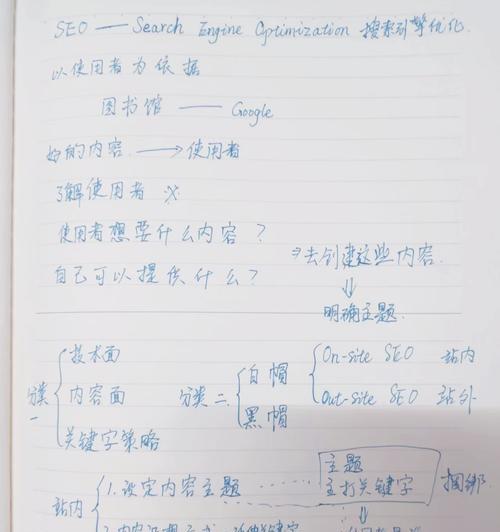 SEO —— Search Engine Optimization 搜索引擎优化.
以使用者为依据
图书馆 —— Google
好的内容 ——> 使用者
了解使用者 ※
使用者想要什么内容？
自己可以提供什么？
⇒去创建这些内容.
⇓
明确主题.
分类一 { 技术面
内容面
关键字策略
分类二 { 白帽
黑帽
{ On-site SEO 站内
Out-site SEO 站外
站内 { 1.设定内容主题 ......
主题
主打关键字
捆绑